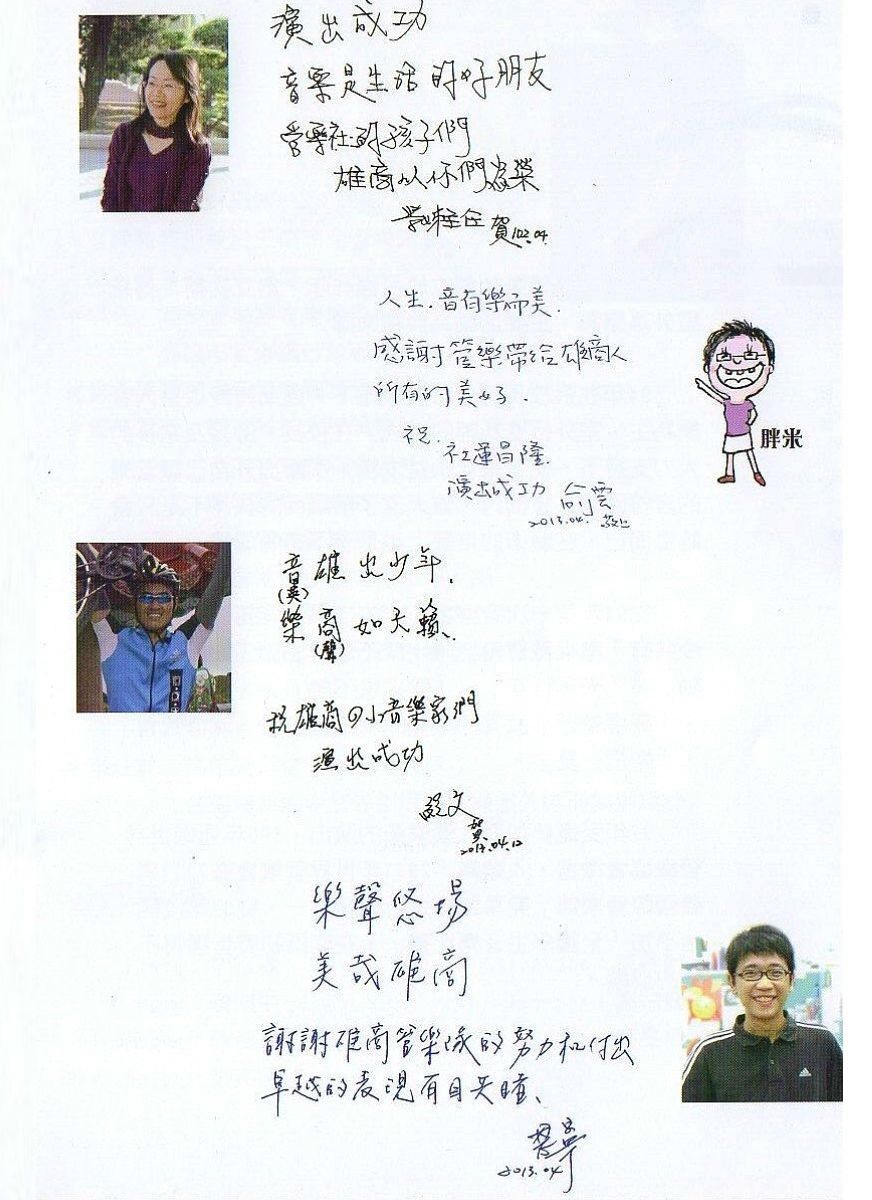 演出成功
音樂是生活的好朋友
管樂社的孩子們
雄商以你們為榮
主任 賀102.04.
人生.音有樂而美.
感謝管樂帶給雄商人
所有的美好.
祝.
社運昌隆.
演出成功
2013.04. 敬上
胖米
音雄出少年.
(英)
樂商如天籟、
(聲)
祝雄商の小音樂家們
演出成功
文
賀
04.12
樂聲悠場
美哉雄商
謝謝雄商管樂隊的努力和付出
卓越的表現有目共睹、
2013.04
adidas